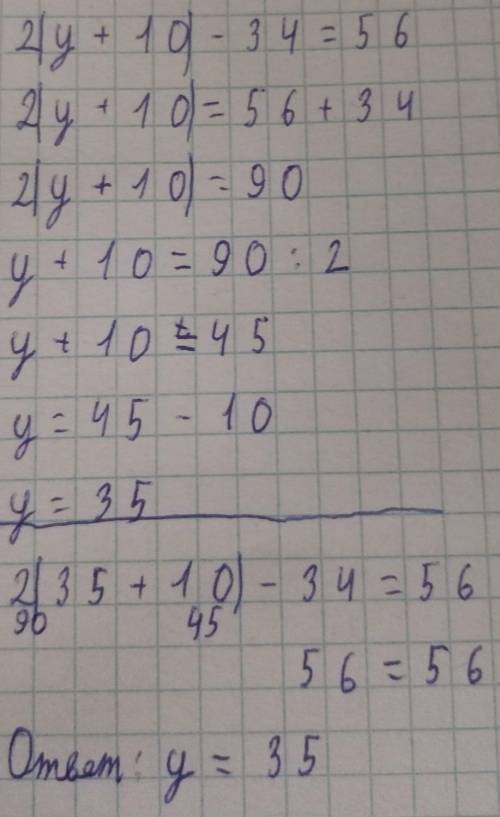 2(y + 10) - 34 = 56
2(y + 10) = 56 + 34
2(y + 10) = 90
y + 10 = 90 : 2
y + 10 = 45
y = 45 - 10
y = 35
2(35 + 10) - 34 = 56
90 45
56 = 56
Ответ: y = 35